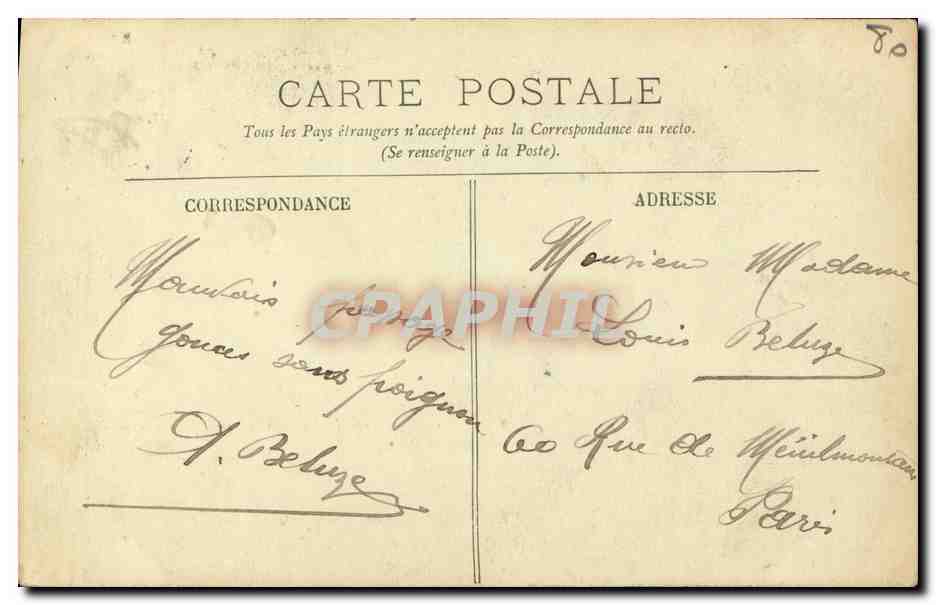 80
CARTE POSTALE
Tous les Pays étrangers n'acceptent pas la Correspondance au recto.
(Se renseigner à la Poste).
CORRESPONDANCE
Mauvais passage
sans
A. Beluze
ADRESSE
Monsieur Madame
Louis Beluze
60 Rue de Ménilmontant
Paris
CPAPHIL